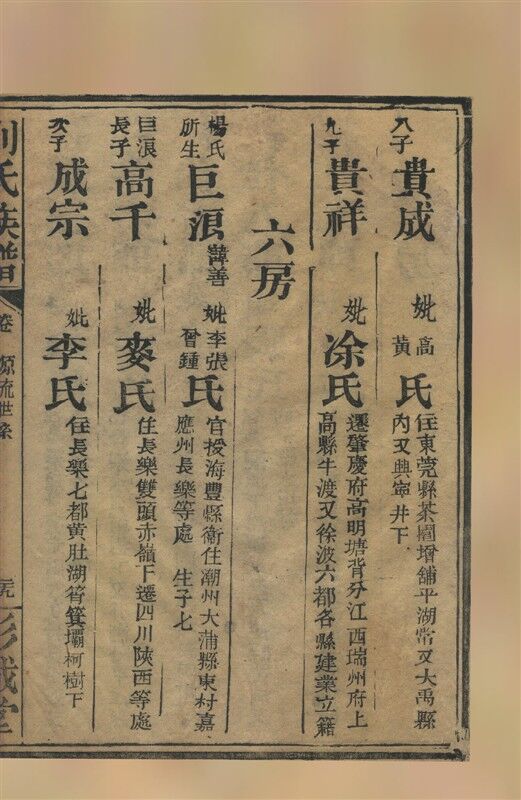 八子 貴成 妣高黃氏 住東莞縣茶園增舖平湖常又大禹縣
內又興寧井下
九子 貴祥 妣凃氏 遷肇慶府高明塘背分江西瑞州府上
高縣牛渡又徐波六都各縣建業立籍
六房
楊氏所生 巨浪 諱善 妣李張曾鍾氏 官授海豐縣衛住潮州大蒲縣東村嘉
應州長樂等處 生子七
巨浪長子 高千 妣麥氏 住長樂雙頭赤嶺下遷四川陝西等處
次子 成宗 妣李氏 住長樂七都黃肚湖箕壩柯樹下
劉氏族譜 卷 源流世系